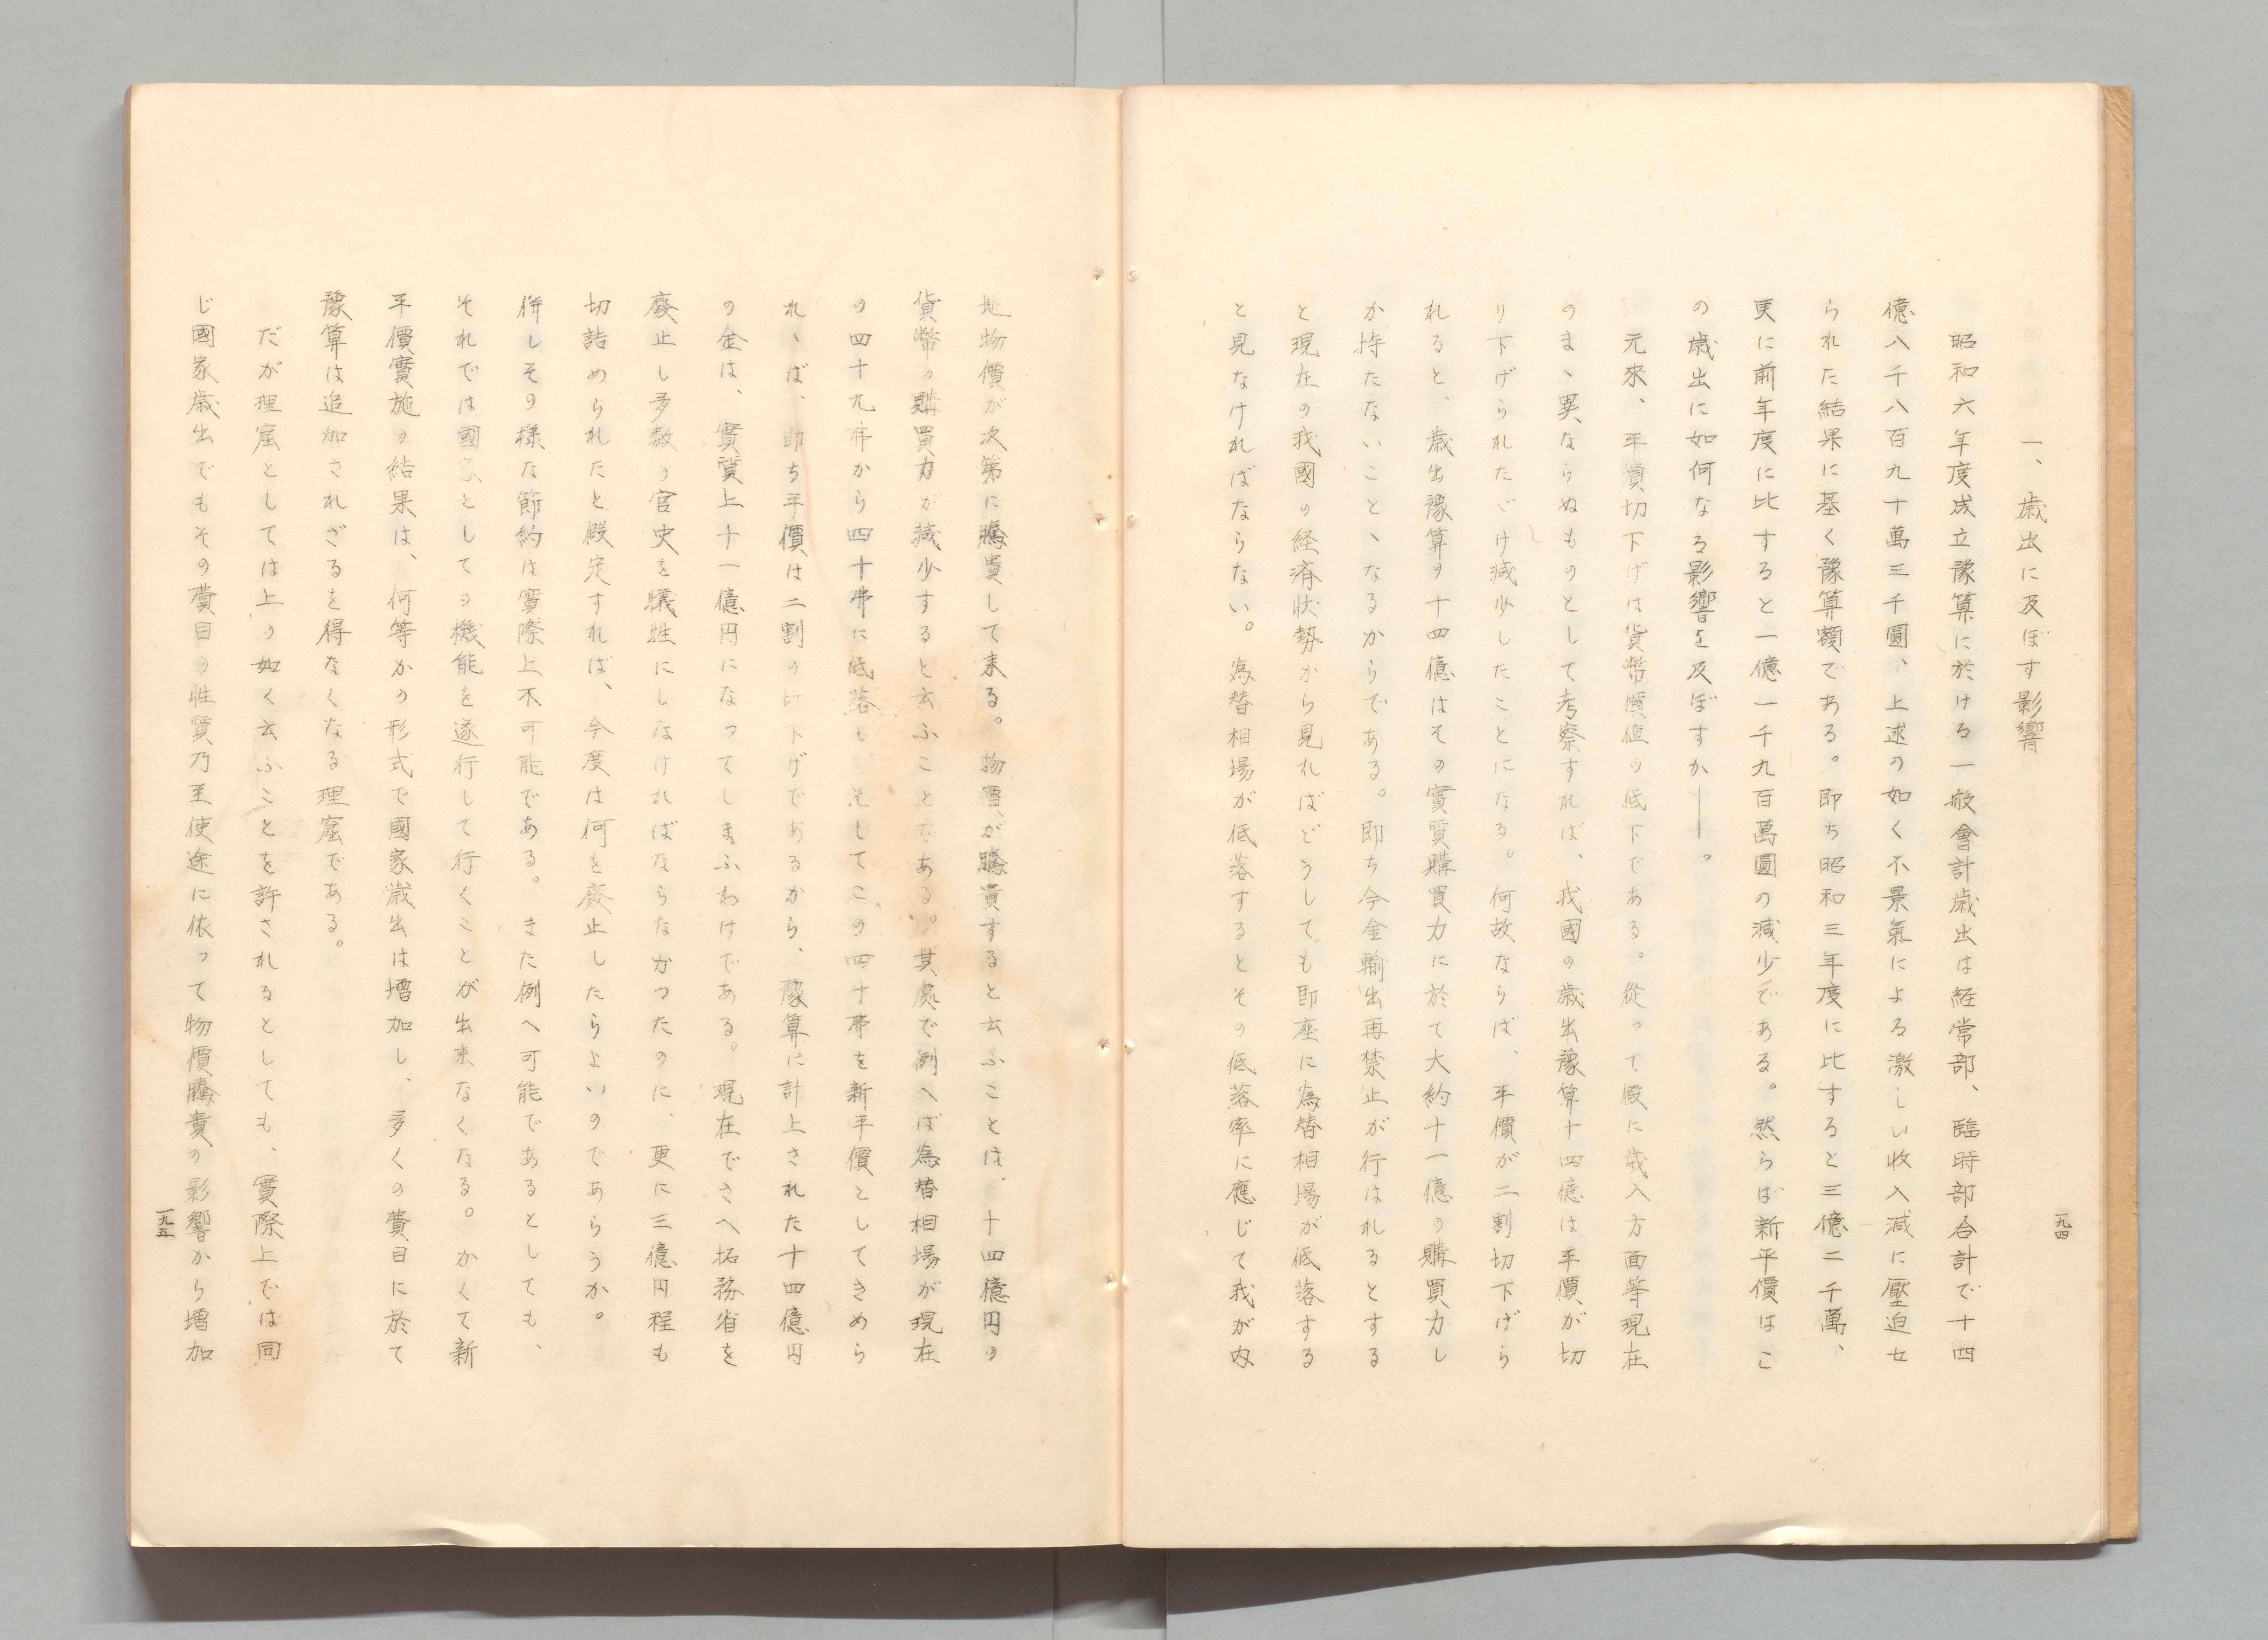 一、歳出に及ぼす影響
昭和六年度成立豫算に於ける一般會計歳出は経常部、臨時部合計で十四
億八千八百九十萬三千圓、上述の如く不景氣による激しい收入減に壓迫せ
られた結果に基く豫算額である。即ち昭和三年度に比すると三億二千萬、
更に前年度に比すると一億一千九百萬圓の減少である。然らば新平價はこ
の歳出に如何なる影響を及ぼすか——。
元來、平價切下げは貨幣價値の低下である。從って假に歳入方面等現在
のまゝ異ならぬものとして考察すれば、我國の歳出豫算十四億は平價が切
り下げられたゞけ減少したことになる。何故ならば、平價が二割切下げら
れると、歳出豫算の十四億はその實質購買力に於て大約十一億の購買力し
か持たないことゝなるからである。即ち今金輸出再禁止が行はれるとする
と現在の我國の経済状勢から見ればどうしても即座に為替相場が低落する
と見なければならない。為替相場が低落するとその低落率に應じて我が内
一九四
地物價が次第に騰貴して来る。物價が騰貴すると云ふことは、十四億円の
貨幣の購買力が減少すると云ふことである。其處で例へば為替相場が現在
の四十九弗から四十弗に低落し、そしてこの四十弗を新平價としてきめら
れゝば、即ち平價は二割の切下げであるから、豫算に計上された十四億円
の金は、實質上十一億円になってしまふわけである。現在でさへ拓務省を
廢止し多数の官吏を犠牲にしなければならなかつたのに、更に三億円程も
切詰められたと假定すれば、今度は何を廢止したらよいのであらうか。
併しその様な節約は實際上不可能である。また例へ可能であるとしても、
それでは國家としての機能を遂行して行くことが出来なくなる。かくて新
平價實施の結果は、何等かの形式で國家歳出は増加し、多くの費目に於て
豫算は追加されざるを得なくなる理窟である。
だが理窟としては上の如く云ふことを許されるとしても、實際上では同
じ國家歳出でもその費目の性質乃至使途に依って物價騰貴の影響から増加
一九五